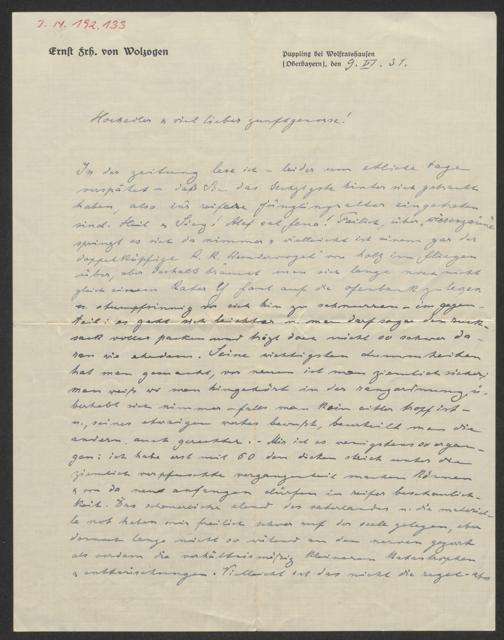 J. N. 192.133
Ernst Frh. von Wolzogen
Puppling bei Wolfratshausen
(Oberbayern), den 9. VI. 31.
Hochedler & viel lieber Zunftgenosse!
In der Zeitung lese ich – leider um etliche Tage
verspätet – daß Sie das Sechzigste hinter sich gebracht
haben, also ins reifere Jünglingsalter eingetreten
sind. Heil & Sieg! Freilich, über
springt es sich da nimmer & vielleicht ist einem gar der
doppelköpfige K. K. vor Holz im fliegen
über, aber deshalb braucht man sich lange noch nicht
gleich einem Kater auf die Ofenbank zu legen
& stumpfsinnig vor sich hin zu schnurren – im Gegen-
teil: es geht sich leichter u. man darf sogar den Ruck-
sack voller packen und trägt doch nicht so schwer da-
ran wie ehedem. Seine wichtigsten Dummheiten
hat man gemacht, vor neuen ist man ziemlich sicher;
man weiß wo man hingehört in der Rangordnung, ü-
berhebt sich nimmer – falls man kein eitler Tropf ist –
u., seines etwaigen Wertes bewußt, beurteilt man die
andern auch gerechter. – Mir ist es wenigstens so ergan-
gen: ich habe erst mit 60 den dicken Strich unter die
ziemlich verpfuschte Vergangenheit machen können
& von da neu anfangen dürfen in reifer Beschaulich-
keit. Das schmerzliche Elend des Vaterlandes u. die materiel-
le Not haben mir freilich schwer auf der Seele gelegen, aber
dennoch lange nicht so wütend an den Nerven gezerrt
als vordem die verhältnismäßig kleineren Katastrophen
& Enttäuschungen. Vielleicht ist das nicht die Regel –